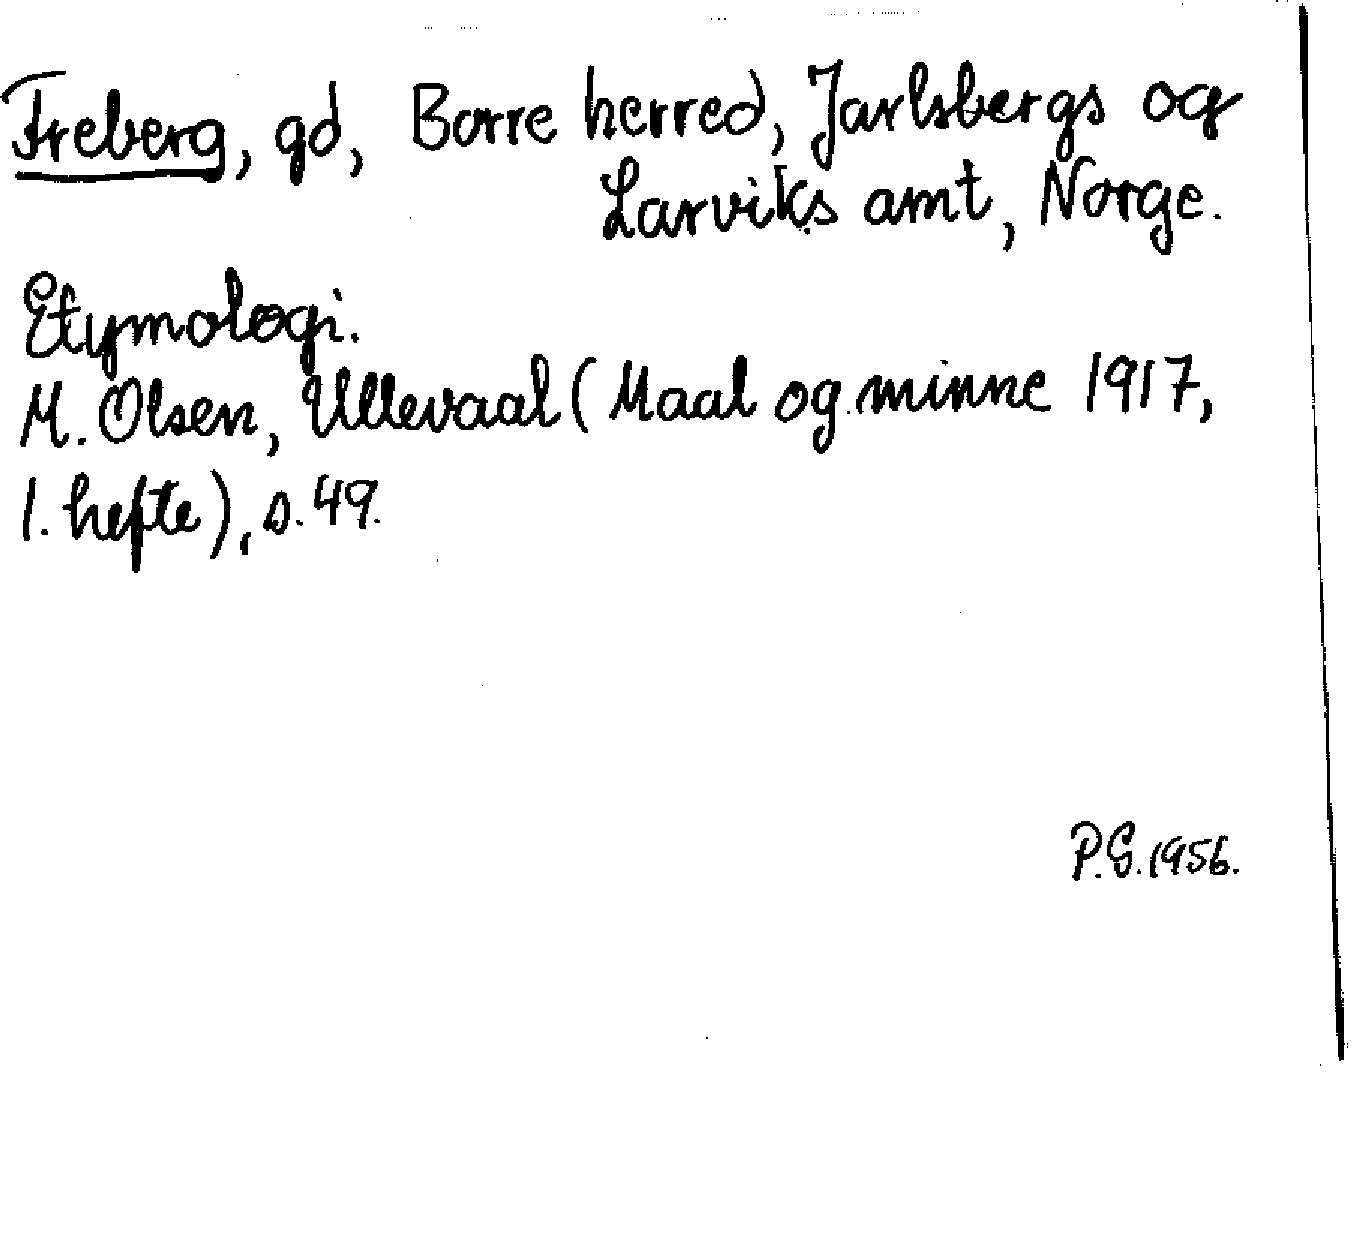 Freberg, gd, Borre herred, Jarlsbergs og
Larviks amt, Norge.
Etymologi.
M. Olsen, Ullevaal (Maal og minne 1917,
1. hefte), s. 49.
P.G. 1956.